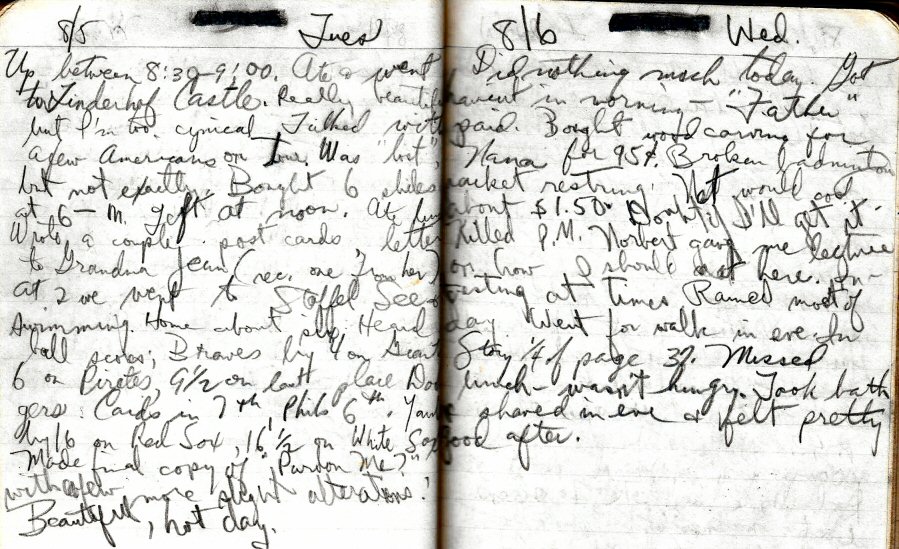 8/5 Tues
Up between 8:30-9:00. Ate & went
to Linderhof Castle. Really beautiful
but I'm too cynical. Talked with
a few Americans on tour. Was "lost",
but not exactly. Bought 6 slides
at 6 - M. Left at noon. Ate lunch
Wrote a couple post cards, letter
to Grandma Jean (rec. one from her)
at 2 we went to Staffel See
swimming. Home about six; Heard
ball scores; Braves by 4 on Giants
6 on Pirates, 9½ on last place Dod
gers. Cards in 7th, Phils 6th. Yanks
by 16 on Red Sox, 16½ on White Sox
Made final copy of "Pardon Me?"
with a few more slight alterations.
Beautiful, hot day.
8/6 Wed.
Did nothing much today. Got
haircut in morning - "Father"
paid. Bought wood carving for
Nana for 95¢. Broken badminton
racket restring. Net would cost
about $1.50. Doubt if I'll get it.
Killed P.M. Norbert gave me lecture
on how I should eat here. In-
resting at times Rained most of
day Went for walk in eve. In
Story ¼ of page 32. Missed
lunch - wasn't hungry. Took bath
& shaved in eve & felt pretty
good after.